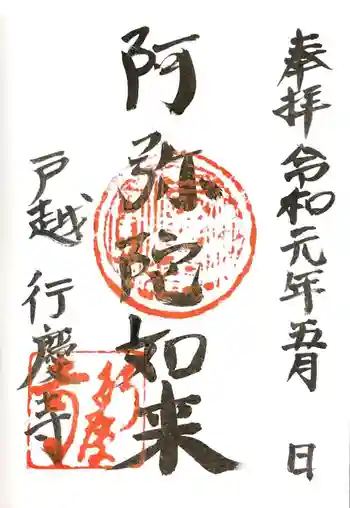 奉拝 令和元年五月 日
阿弥陀如来
戸越 行慶寺